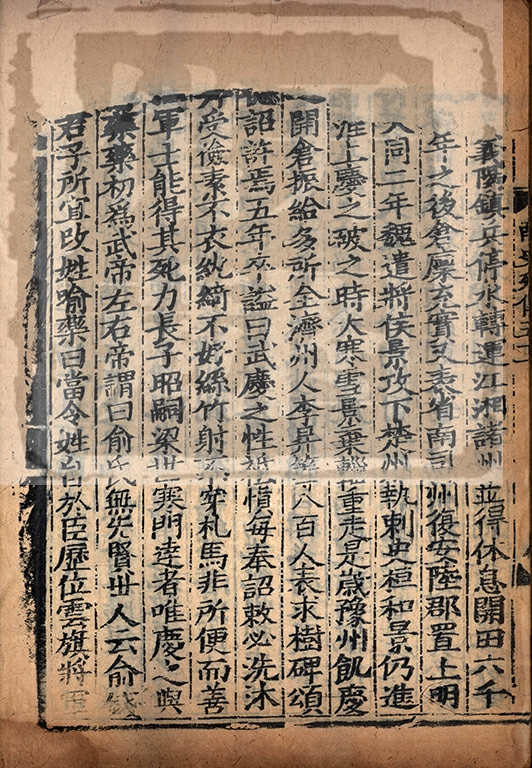 義陽鎮兵停水轉運江湘諸州並得休息開田六千
年之後倉廩充實又表省南司州復安陸郡置上明
大同二年魏遣將侯景攻下楚州執刺史桓和景仍進
淮上慶之破之時大寒雪景棄輜重走是歲豫州飢慶
開倉振給多所全濟州人李昇等八百人表求樹碑頌
詔許焉五年卒謚曰武慶之性祗慎每奉詔敕必洗沐
受儉素不衣紈綺不好絲竹射不穿札馬非所便而善
軍士能得其死力長子昭嗣梁世寒門達者唯慶之與
藥藥初爲武帝左右帝謂曰俞氏無先賢世人云俞錢
君子所宜改姓喻藥曰當令姓自於臣歷位雲旗將軍